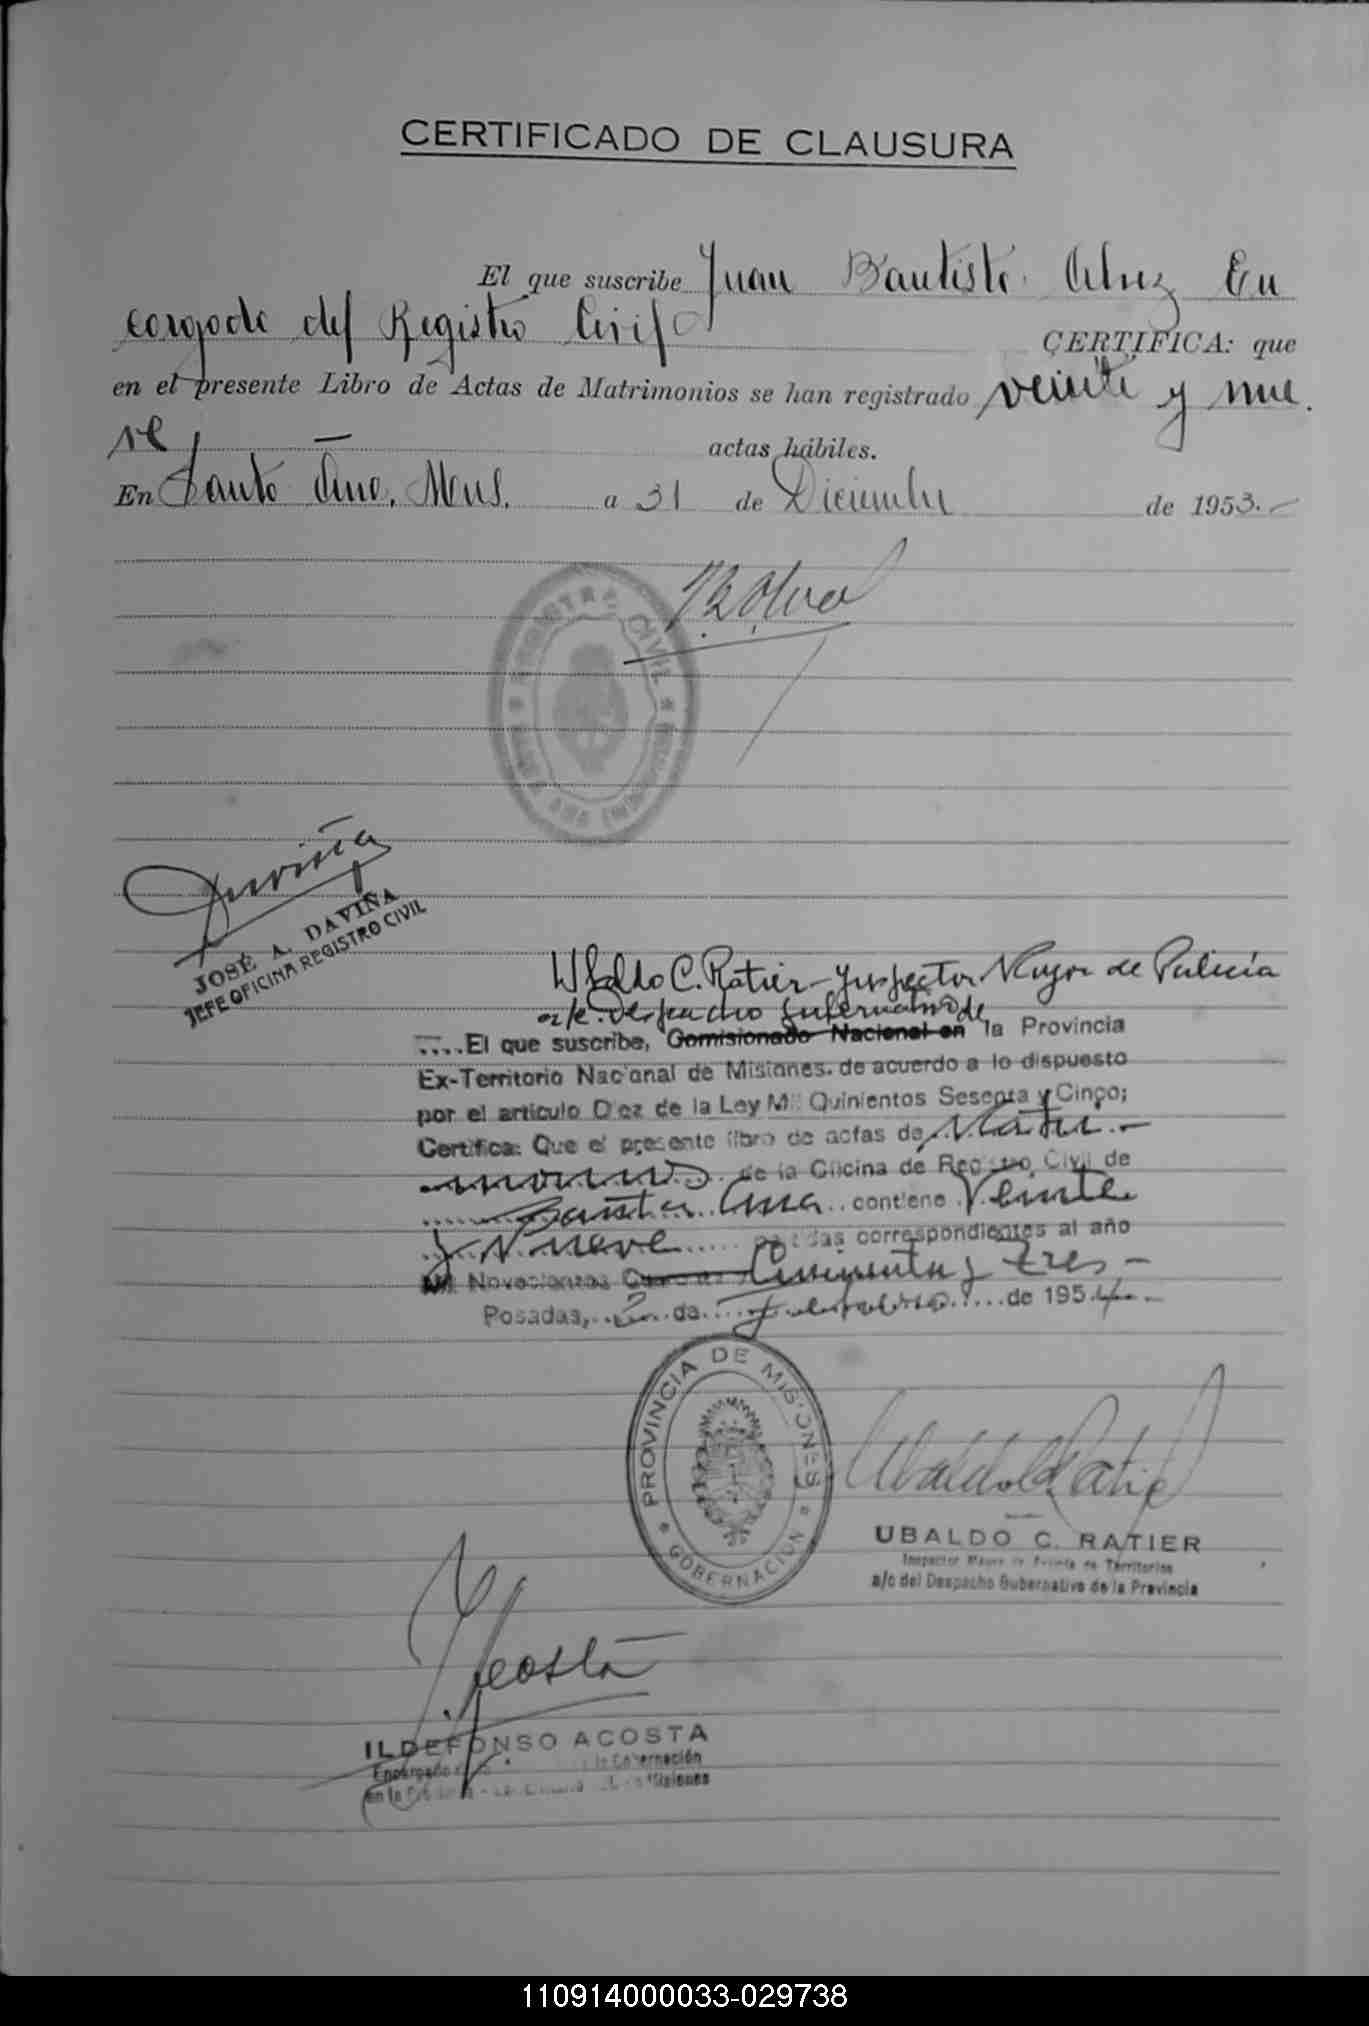 CERTIFICADO DE CLAUSURA
El que suscribe Juan Bautista En
cargado del Registro Civil CERTIFICA: que
en el presente Libro de Actas de Matrimonios se han registrado veinte y nue
ve actas hábiles.
En Santa Ana, Mnes. a 31 de Diciembre de 1953.-
REGISTRO CIVIL
Daviña
JOSÉ A. DAVIÑA
JEFE OFICINA REGISTRO CIVIL
Ubaldo C. Ratier - Inspector Mayor de Policía
a/c. Despacho Gubernativo de
....El que suscribe, Comisionado Nacional en la Provincia
Ex-Territorio Nacional de Misiones. de acuerdo a lo dispuesto
por el artículo Diez de la Ley Mil Quinientos Sesenta y Cinco;
Certifica: Que el presente libro de actas de Matri-
monios de la Oficina de Registro Civil de
Santa Ana contiene Veinte
y Nueve partidas correspondientes al año
Mil Novecientos Cincuenta y tres -
Posadas, 2 de febrero de 1954.-
PROVINCIA DE MISIONES
GOBERNACION
Ubaldo C. Ratier
UBALDO C. RATIER
Inspector Mayor de Policía de Territorios
a/c del Despacho Gubernativo de la Provincia
Acosta
ILDEFONSO ACOSTA
Encargado la Gobernación
en la Misiones
110914000033-029738